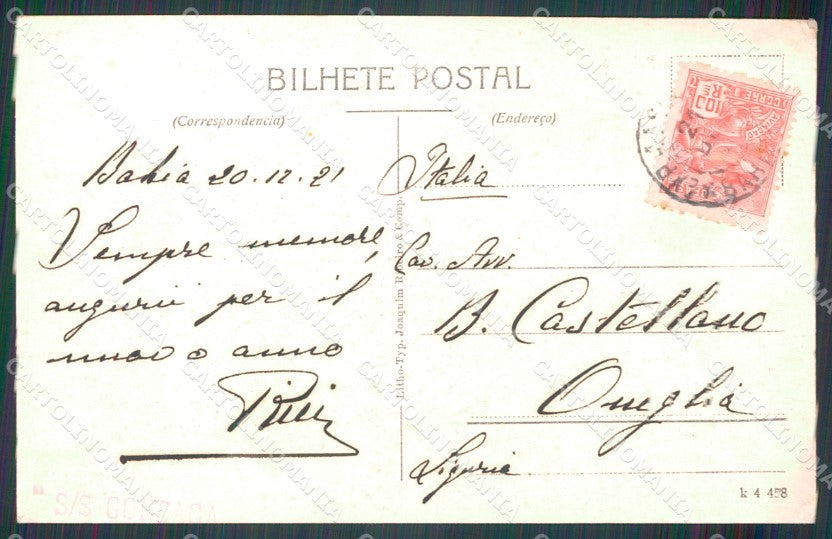 BILHETE POSTAL
(Correspondencia)
(Endereço)
Bahia 20.12.21
Sempre memore,
augurii per il
nuovo anno
Italia
Cav. Avv.
B. Castellano
Oneglia
Liguria
Litho-Typ. Joaquim & Comp.
CORREIO
AVIAÇÃO
100 RS
BAHIA
21
S/S
k 4 458
CARTOLINOMANIA